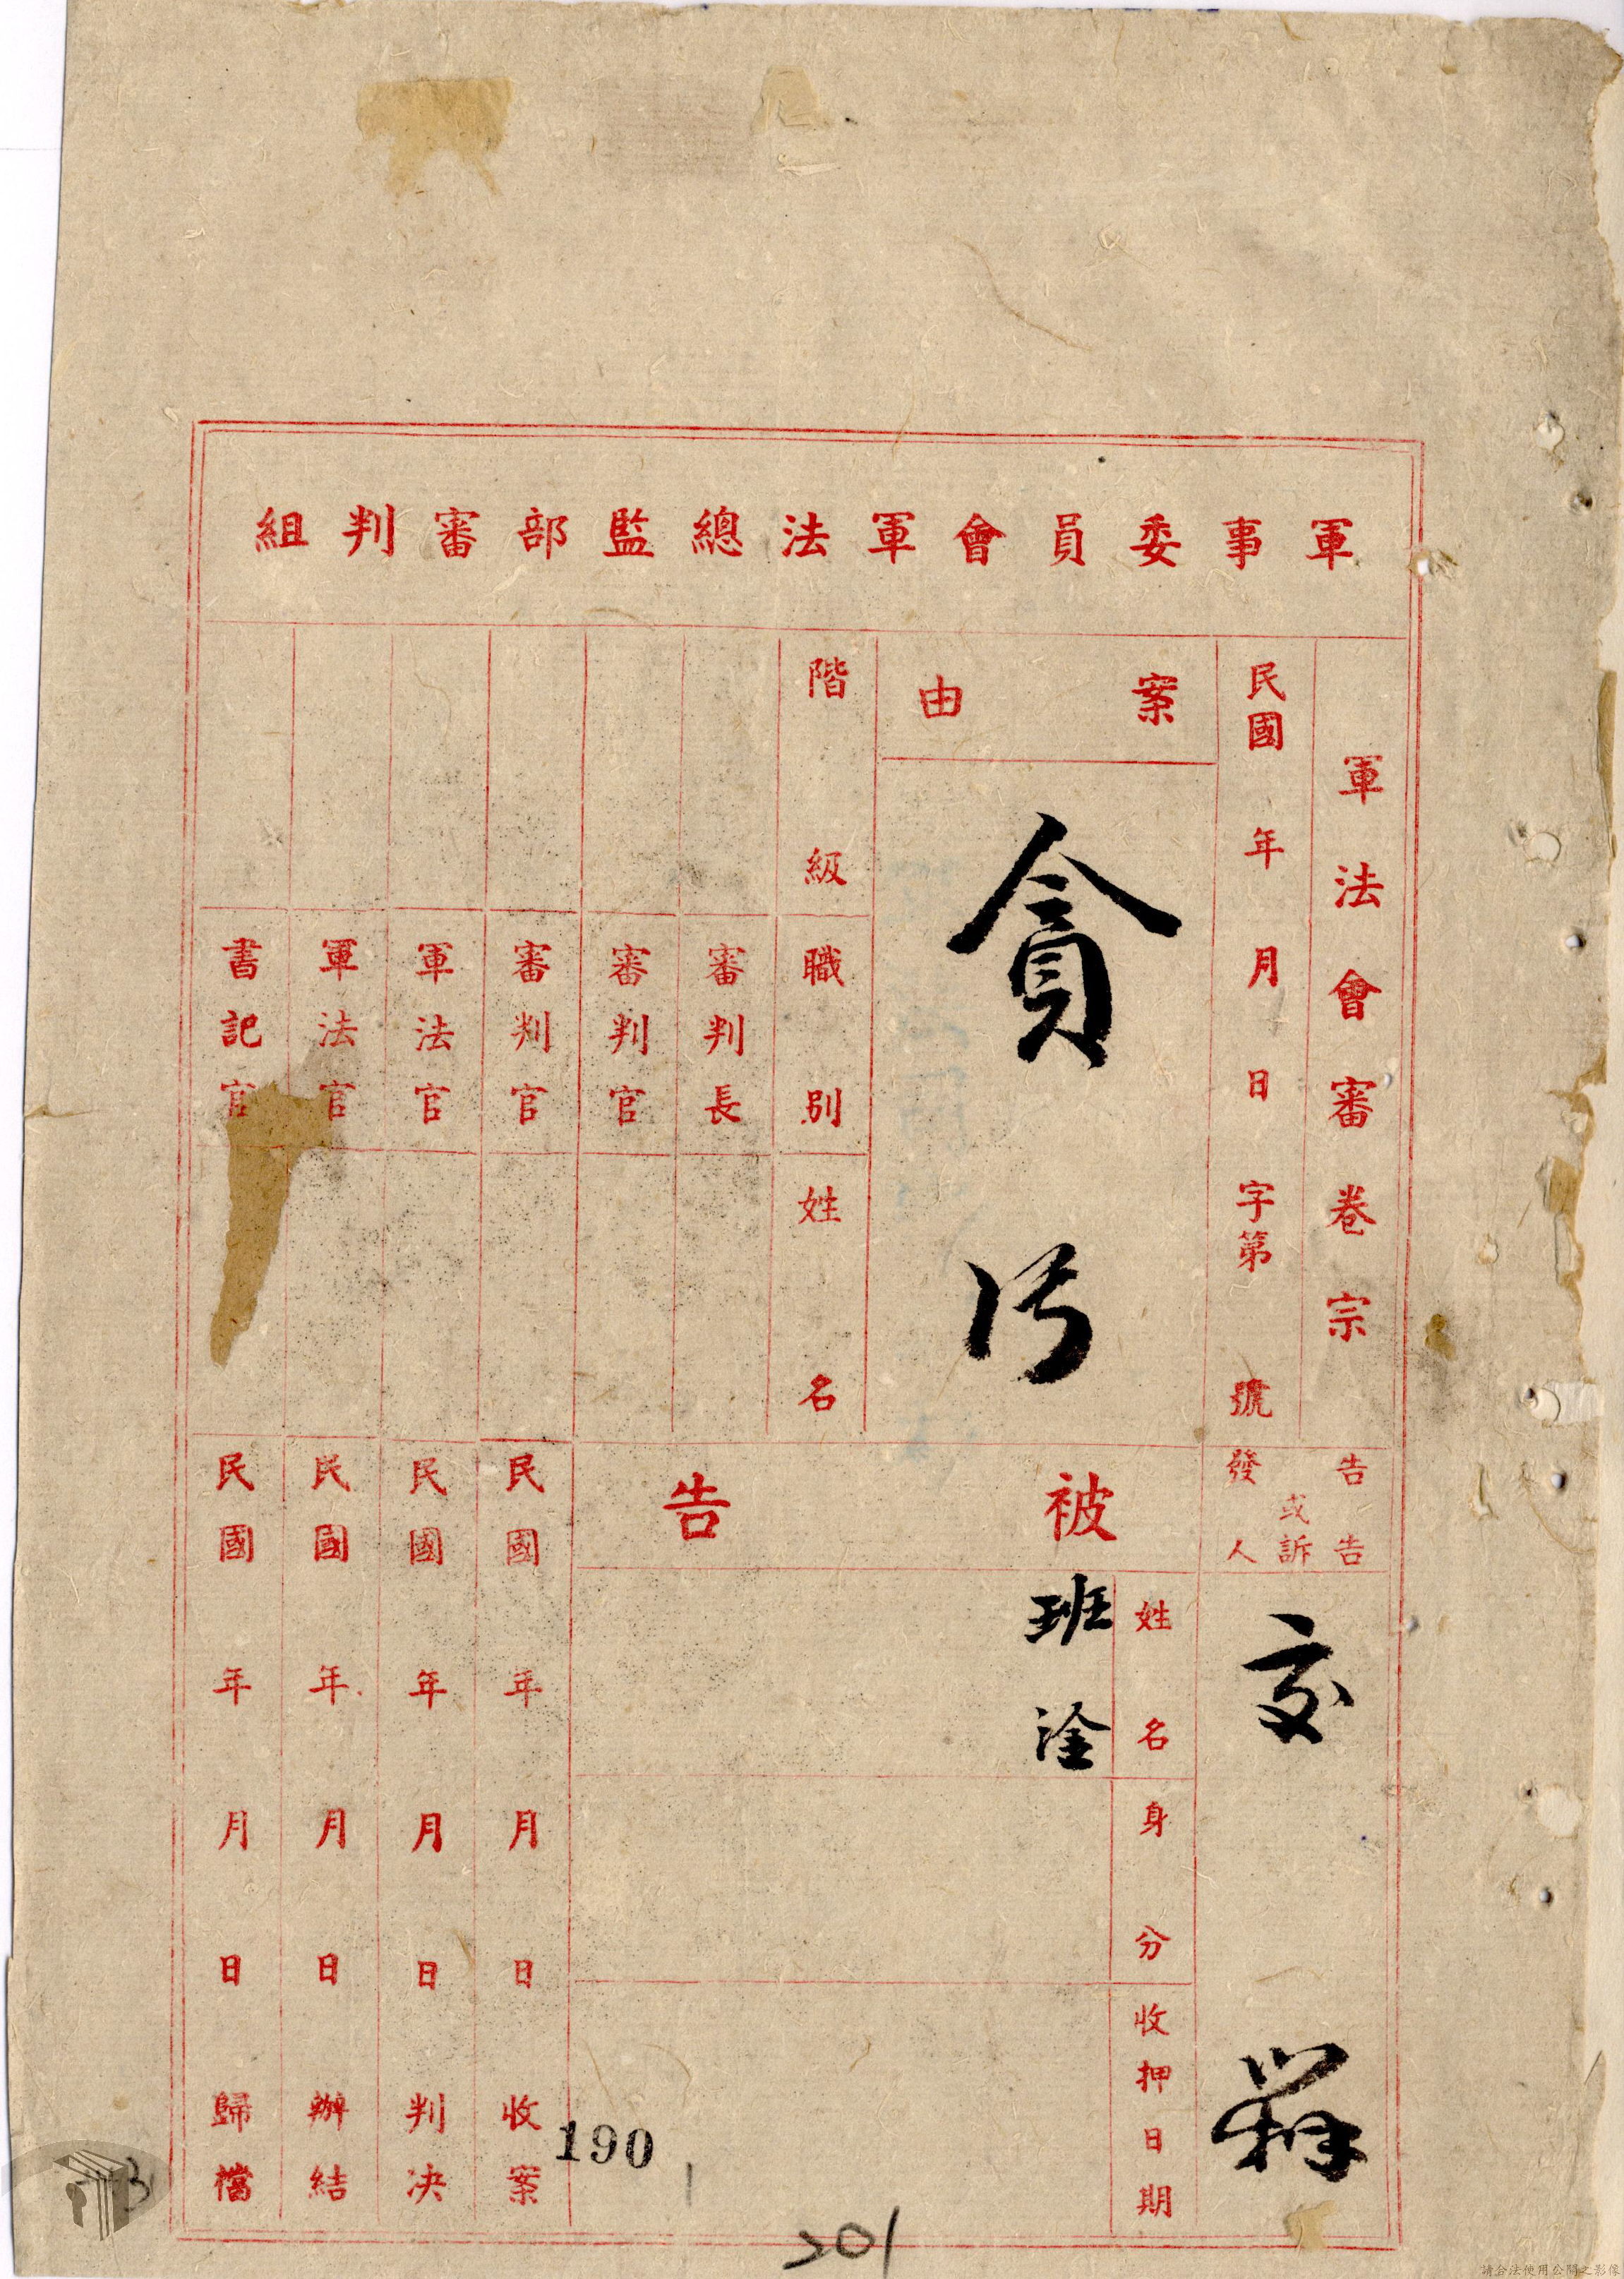 軍事委員會軍法總監部審判組
軍法會審卷宗
民國年月日字第號
案由
貪污
告告
或訴
發人
交
被告
姓名
班淦
身分
收押日期
階級
職別
姓名
審判長
審判官
審判官
軍法官
軍法官
書記官
民國年月日收案
民國年月日判决
民國年月日辦結
民國年月日歸檔
190
201
請合法使用公開之影像